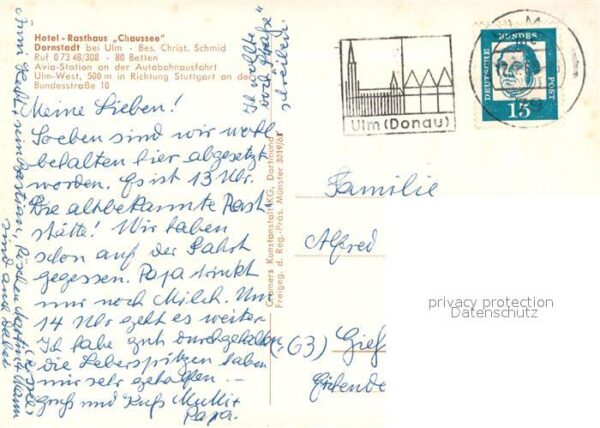 Hotel - Rasthaus „Chaussee"
Dornstadt bei Ulm - Bes. Christ. Schmid
Ruf 0 73 48/308 - 80 Betten
Avia-Station an der Autobahnausfahrt
Ulm-West, 500 m in Richtung Stuttgart an der
Bundesstraße 10
Meine Lieben!
Soeben sind wir wohl
behalten hier abgesetzt
worden. Es ist 13 Uhr.
Die altbekannte Rast-
stätte! Wir haben
schon auf der Fahrt
gegessen. Papa trinkt
nur noch Milch. Um
14 Uhr geht es weiter
Ich habe gut durchgehalten
die Leberspritzen haben
mir sehr geholfen. -
Gruß und Kuß Mutti
Papa.
Ich wollte
schreiben
sind auch dabei
Cramers Kunstanstalt KG, Dortmund
Freigeg. d. Reg.-Präs. Münster 3019/63
Ulm (Donau)
DEUTSCHE BUNDESPOST
15
Familie
Alfred
(63) Gieß
privacy protection
Datenschutz